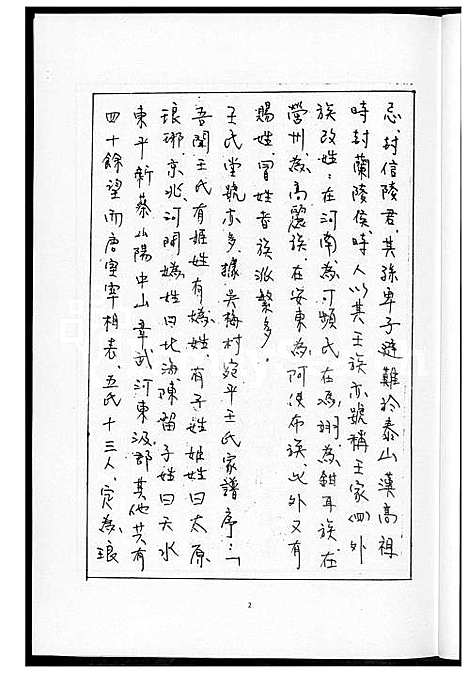 忌，封信陵君，其孫卑子避難於泰山，漢高祖
時封蘭陵侯，時人以其王族亦號稱王家(四)外
族改姓：在河南為可頻氏在馮翊為鉗耳族，在
營州為高麗族，在安東為阿佚布族，此外又有
賜姓，冒姓者族派繁多。
王氏堂號亦多，據吳梅村宛平王氏家譜序：「
吾聞王氏有姬姓，有媯姓，有子姓，姬姓曰太原
琅琊，京兆，河間媯姓曰北海陳留子姓曰天水
東平新蔡山陽中山章武河東汲郡其他共有
四十餘望而唐室宰相表，五氏十三人，定為琅
2